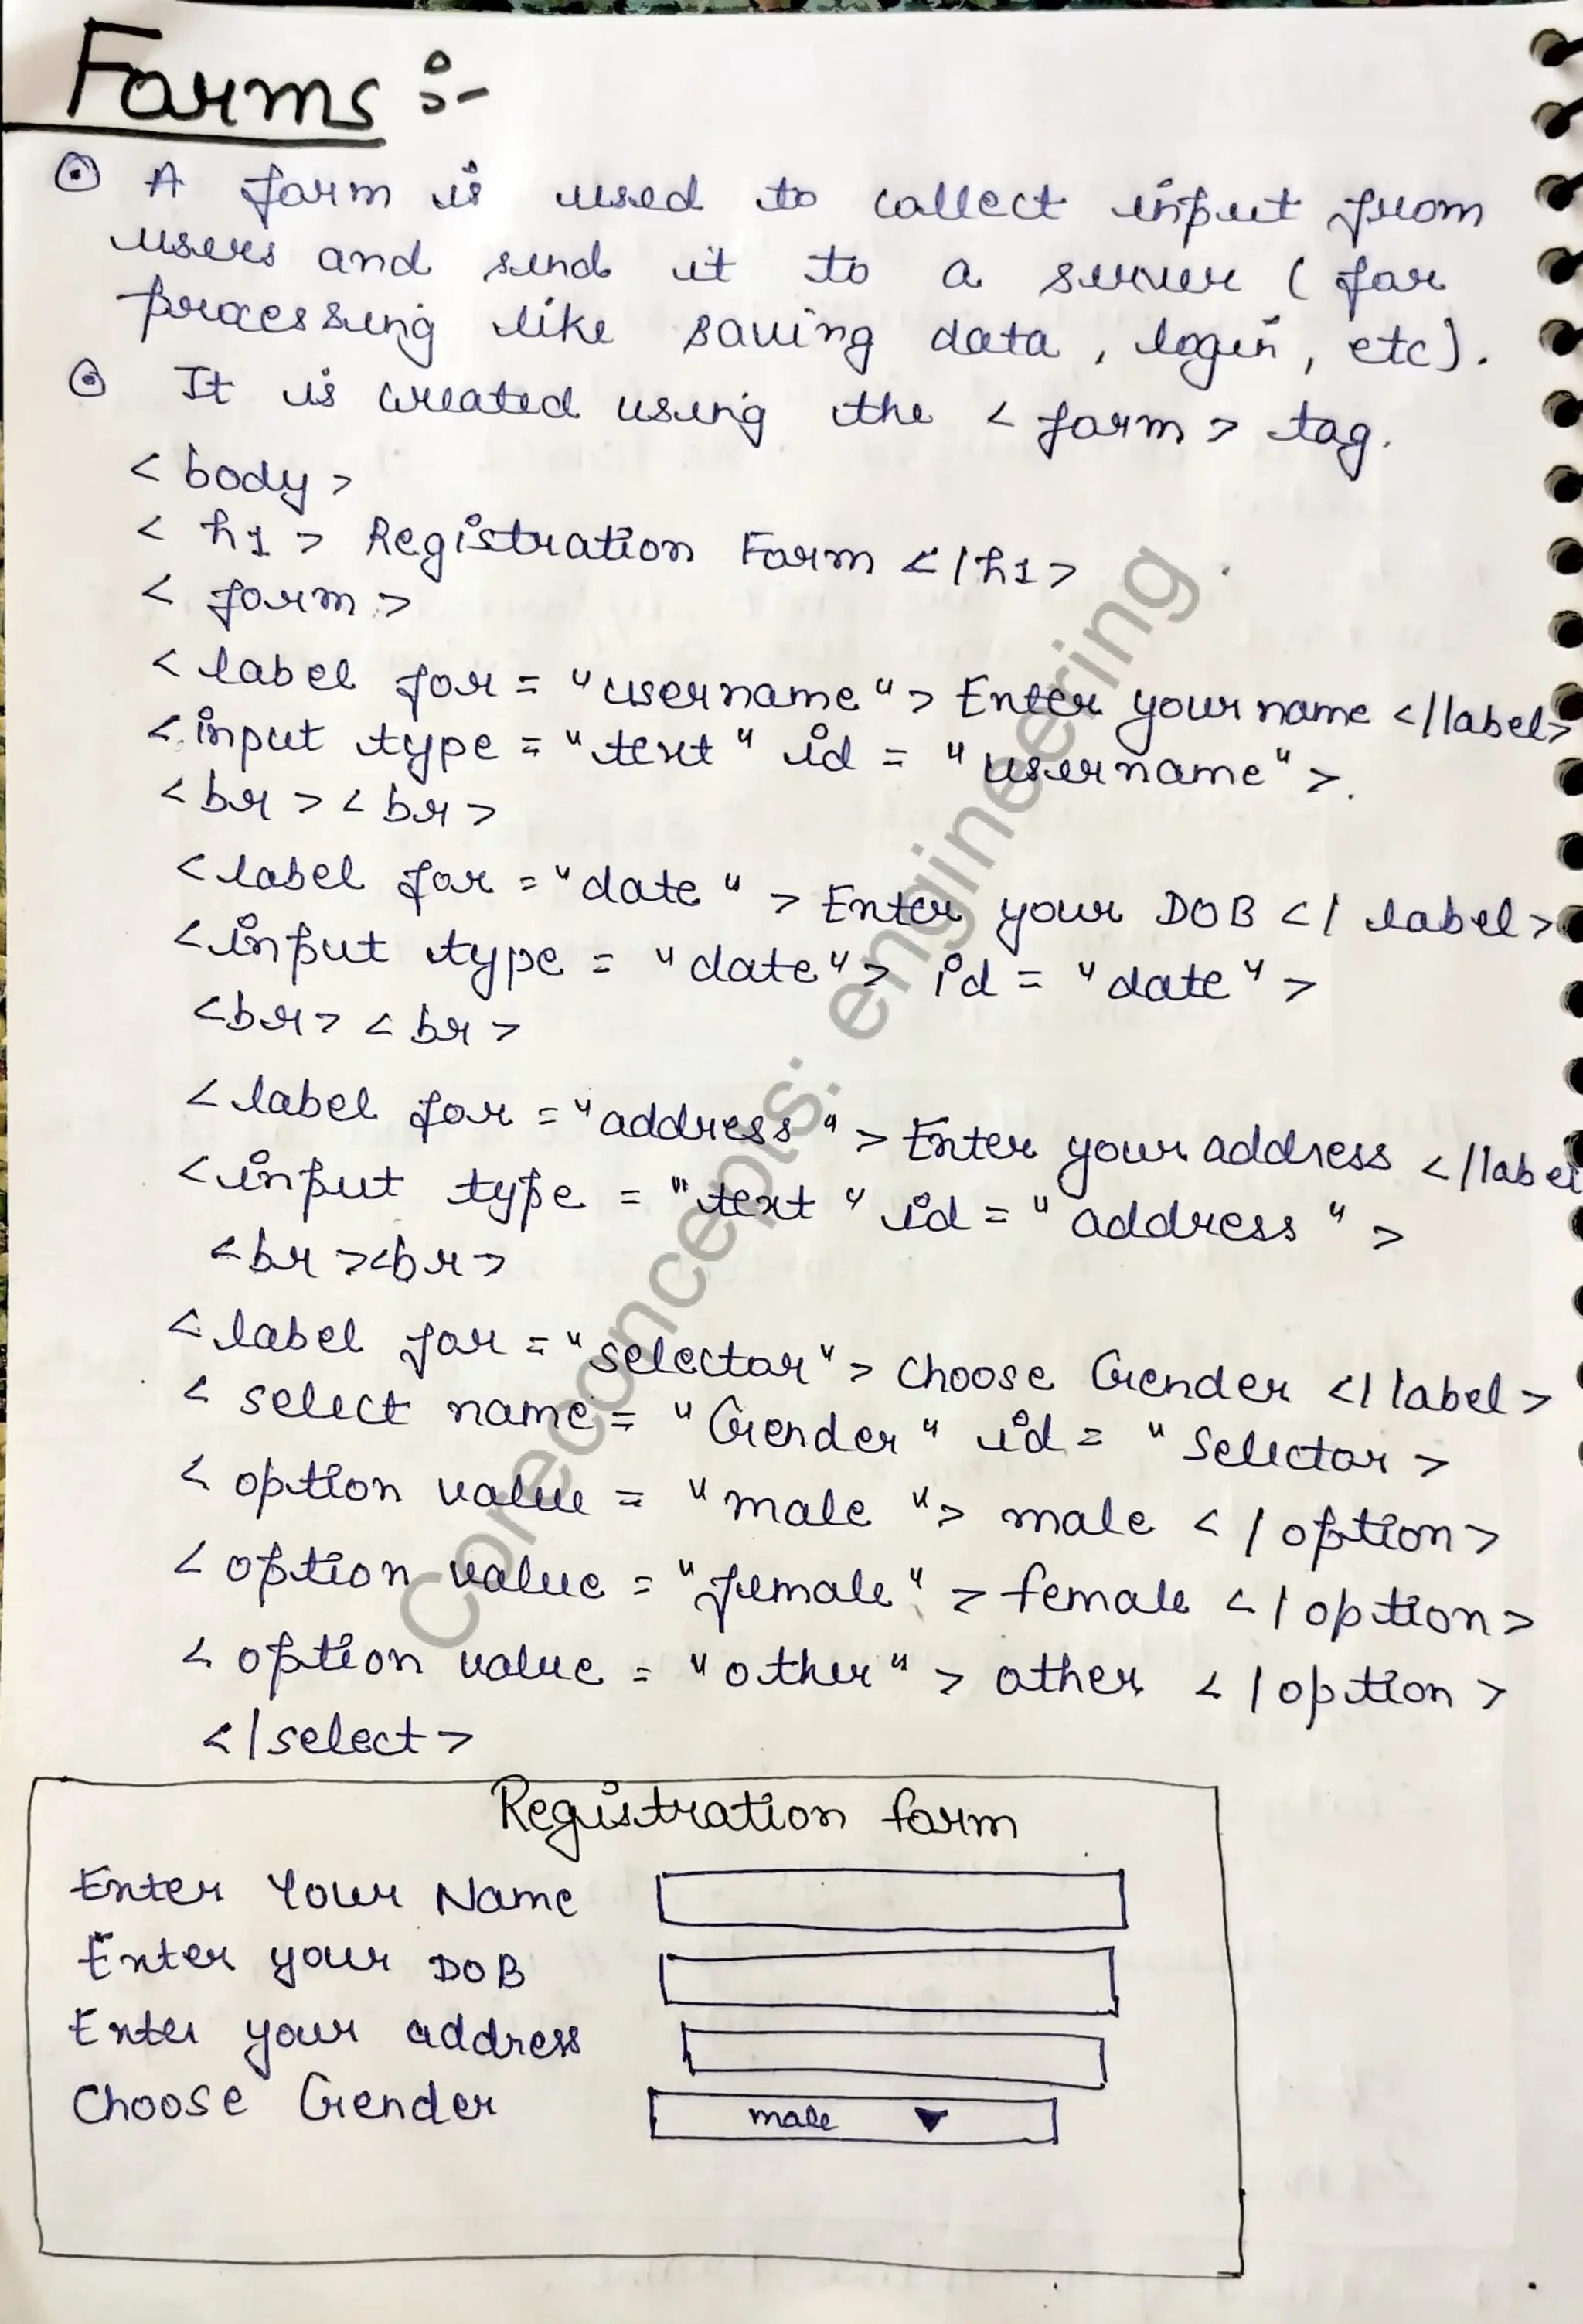 Forms :-
A form is used to collect input from
users and send it to a server ( for
processing like saving data , login , etc ) .
It is created using the < form > tag .
< body >
< h1 > Registration Form < / h1 >
< form >
< label for = "username" > Enter your name < / label >
< input type = "text" id = "username" > .
< br > < br >
< label for = "date" > Enter your DOB < / label >
< input type = "date" > id = "date" >
< br > < br >
< label for = "address" > Enter your address < / label
< input type = "text" id = "address" >
< br > < br >
< label for = "selector" > choose Gender < / label >
< select name = "Gender" id = "selector >
< option value = "male" > male < / option >
< option value = "female" > female < / option >
< option value = "other" > other < / option >
< / select >
Registration form
Enter Your Name
Enter your DOB
Enter your address
Choose Gender male
Coreconcepts: engineering